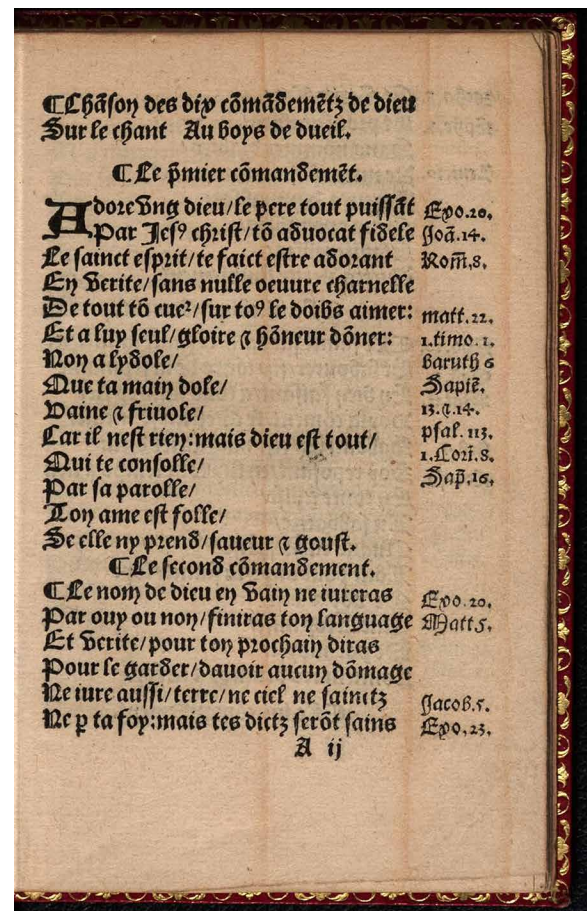 ¶Chãson des dix cõmãdemẽtz de dieu
Sur le chant Au boys de dueil.
¶Le p̃mier cõmandemẽt.
Adore vng dieu/le pere tout puissãt Exo.20.
Par Jesꝰ christ/tõ aduocat fidele Joã.14.
Le sainct esprit/te faict estre adorant Rom̃.8.
En verite/sans nulle oeuure charnelle
De tout tõ cueꝛ/sur toꝰ le doibs aimer: matt.22.
Et a luy seul/gloire ⁊ hõneur dõner: 1.timo.1.
Non a lydole/ baruth 6
Que ta main dole/ Sapiẽ.
Vaine ⁊ friuole/ 13.⁊.14.
Car il nest rien:mais dieu est tout/ psal.113.
Qui te consolle/ 1.Corĩ.8.
Par sa parolle/ Sap̃.16.
Ton ame est folle/
Se elle ny prend/saueur ⁊ goust.
¶Le second cõmandement.
¶Le nom de dieu en vain ne iureras Exo.20.
Par ouy ou non/finiras ton language Matt5.
Et verite/pour ton prochain diras
Pour le garder/dauoir aucun dõmage
Ne iure aussi/terre/ne ciel ne sainctz Jacob.5.
Ne ꝑ ta foy:mais tes dictz serõt sains Exo.23.
A ij